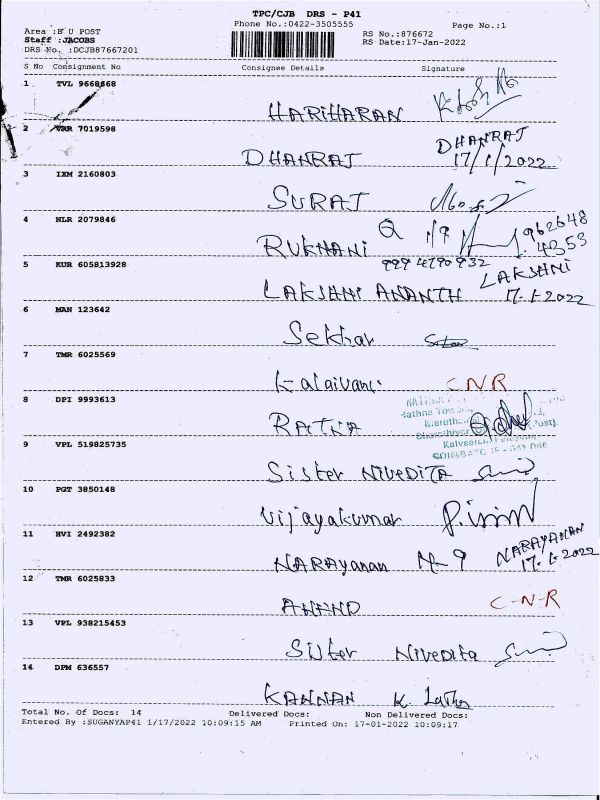 TPC/CJB DRS - P41
Phone No.:0422-3505555 Page No.:1
Area :B U POST
Staff :JACOBS
DRS No. :DCJB87667201
RS No.:876672
RS Date:17-Jan-2022
S No Consignment No Consignee Details Signature
1 TVL 9668668
HARIHARAN
2 VRR 7019598
DHANRAJ DHANRAJ
17/1/2022
3 IXM 2160803
SURAJ
4 NLR 2079846
RUKMANI 962648
4353
5 KUR 605813928 999 4790932
LAKSHMI ANANTH LAKSHMI
17-1-2022
6 MAN 123642
Sekhar
7 TMR 6025569
Kalaivani CNR
8 DPI 9993613
RATNA
9 VPL 519825735
Sister NIVEDITA
10 PGT 3850148
Vijayakumar
11 HVI 2492382
NARAyanan M-9 NARAYANAN
17-1-2022
12 TMR 6025833
ANAND C-N-R
13 VPL 938215453
Sister Nivedita
14 DPM 636557
KANNAN K. Latha
Total No. Of Docs: 14 Delivered Docs: Non Delivered Docs:
Entered By :SUGANYAP41 1/17/2022 10:09:15 AM Printed On: 17-01-2022 10:09:17